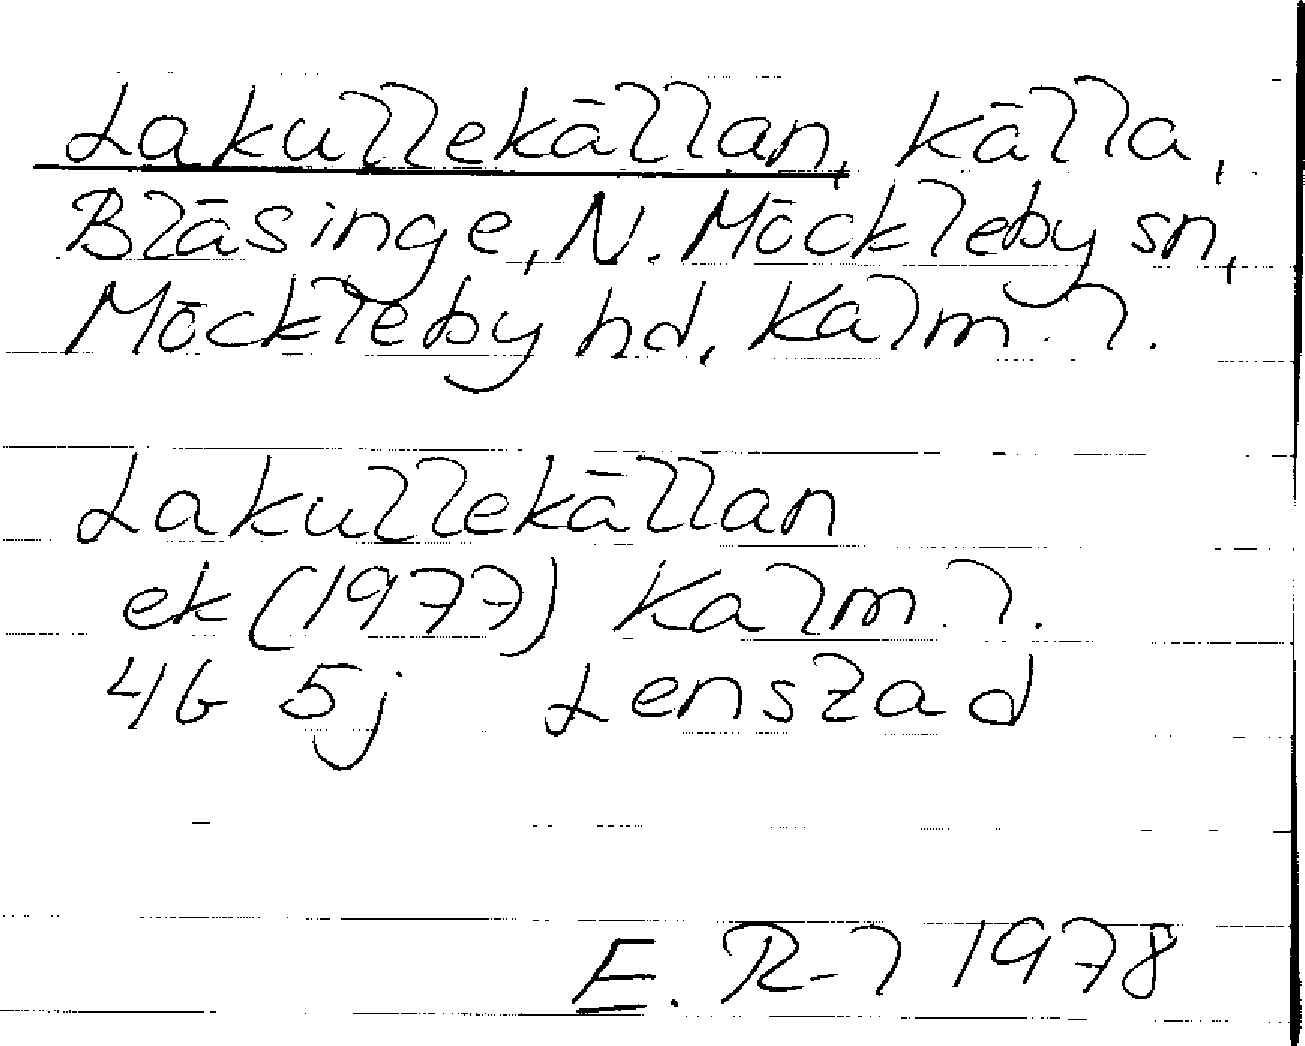 Lakullekällan, källa,
Bläsinge, N. Möckleby sn,
Möckleby hd, Kalm. l.
Lakullekällan
ek (1977) Kalm. l.
4G 5j Lenstad
E. R-l 1978